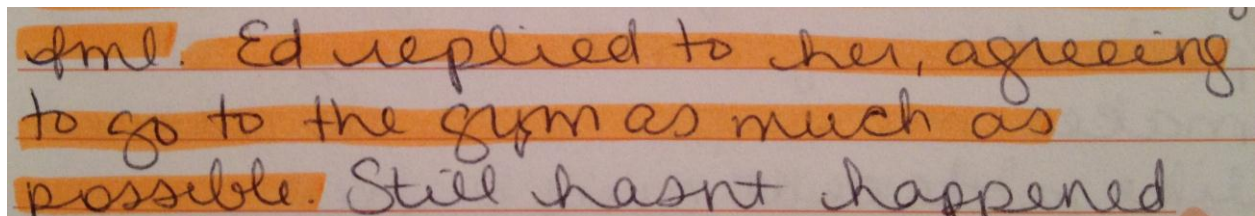 fml. Ed replied to her, agreeing
to go to the gym as much as
possible. Still hasnt happened